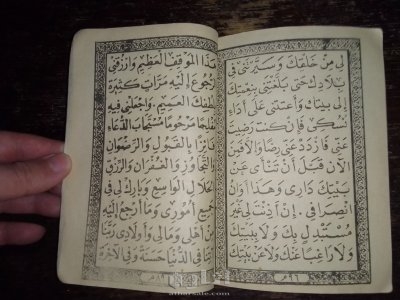 لِي مِنْ خَلْقِكَ وَسَيَّرْتَنِي فِي
بِلَادِكَ حَتَّى بَلَّغْتَنِي بِنِعْمَتِكَ
إِلَى بَيْتِكَ وَأَعَنْتَنِي عَلَى أَدَاءِ
نُسُكِي فَإِنْ كُنْتَ رَضِيتَ
عَنِّي فَازْدَدْ عَنِّي رِضًا وَإِلَّا فَمِنَ
الْآنَ قَبْلَ أَنْ تَنْأَى عَنْ
بَيْتِكَ دَارِي وَهٰذَا أَوَانُ
انْصِرَافِي إِنْ أَذِنْتَ لِي غَيْرَ
مُسْتَبْدِلٍ بِكَ وَلَا بِبَيْتِكَ
وَلَا رَاغِبًا عَنْكَ وَلَا عَنْ بَيْتِكَ
٩٦
هٰذَا الْمَوْقِفِ الْعَظِيمِ وَارْزُقْنِي
الرُّجُوعَ إِلَيْهِ مَرَّاتٍ كَثِيرَةً
بِلُطْفِكَ الْعَمِيمِ وَاجْعَلْنِي فِيهِ
مُفْلِحًا مَرْحُومًا مُسْتَجَابَ الدُّعَاءِ
فَائِزًا بِالْقَبُولِ وَالرِّضْوَانِ
وَالتَّجَاوُزِ وَالْغُفْرَانِ وَالرِّزْقِ
الْحَلَالِ الْوَاسِعِ وَبَارِكْ لِي فِي
جَمِيعِ أُمُورِي وَمَا أَرْجِعُ إِلَيْهِ
مِنْ أَهْلِي وَمَالِي وَأَوْلَادِي رَبَّنَا
آتِنَا فِي الدُّنْيَا حَسَنَةً وَفِي الْآخِرَةِ